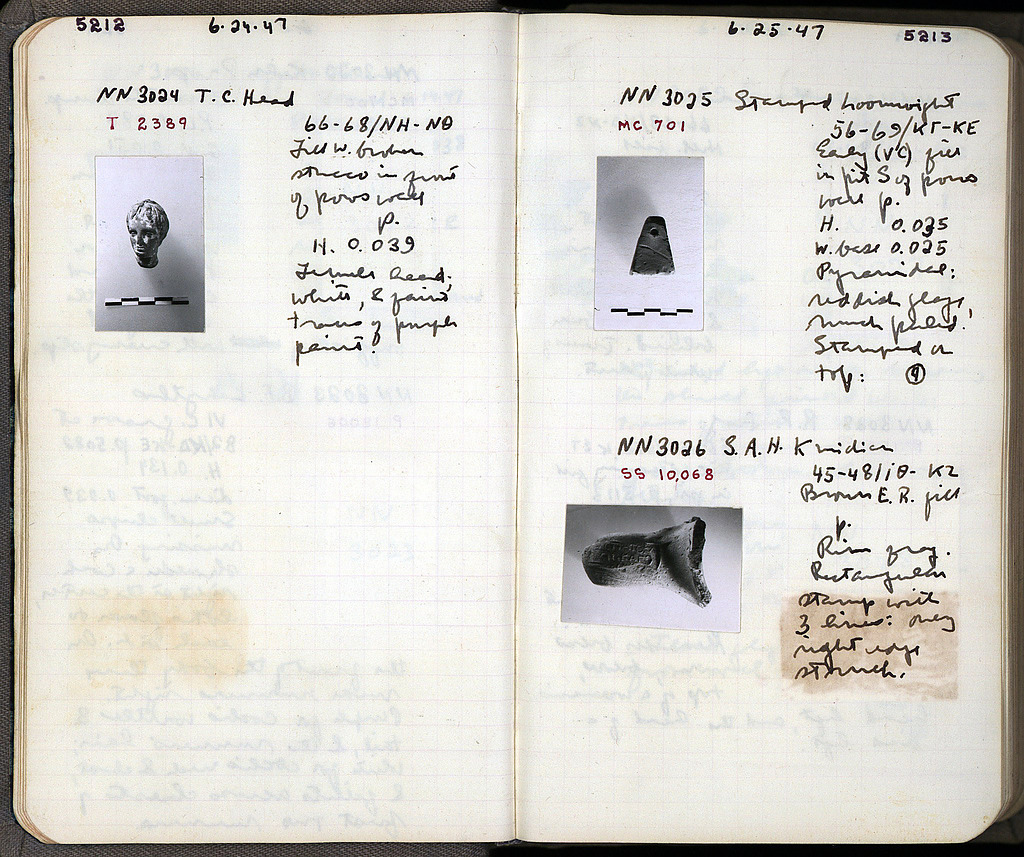 5212 6·24·47
NN 3024 T.C. Head
T 2389
66-68/NH-NΘ
Fill w. broken
stucco in front
of poros wall
p.
H. 0.039
Female head;
white, & faint
traces of purple
paint.
6·25·47 5213
NN 3025 Stamped loomweight
MC 701
56-69/KΓ-KE
Early (VC) fill
in pit S of poros
wall p.
H. 0.035
W. base 0.025
Pyramidal:
reddish glaze,
much peeled.
Stamped on
top:
NN 3026 S.A.H. Knidian
SS 10,068
45-48/IΘ-KZ
Brown E.R. fill
p.
Rim frag.
Rectangular
stamp with
3 lines: only
right edge
struck.